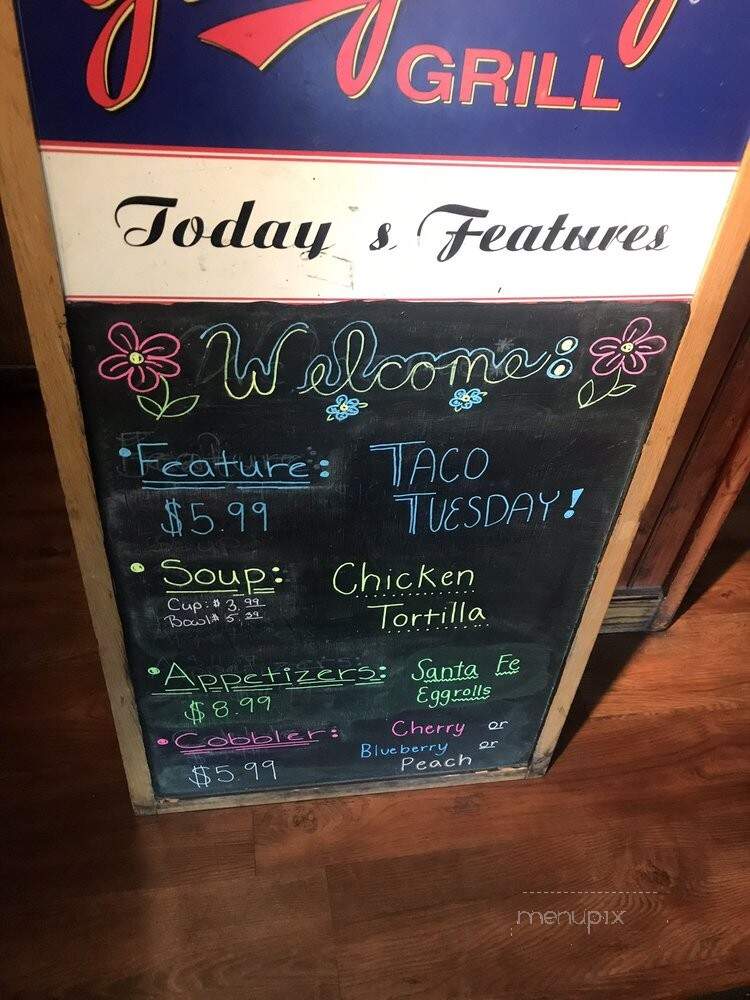 GRILL
Today s Features
Welcome:
• Feature: TACO
$5.99 TUESDAY!
• Soup: Chicken
Cup: $3.99 Tortilla
Bowl $5.
• Appetizers: Santa Fe
$8.99 Eggrolls
• Cobbler: Cherry or
Blueberry or
$5.99 Peach
menupix